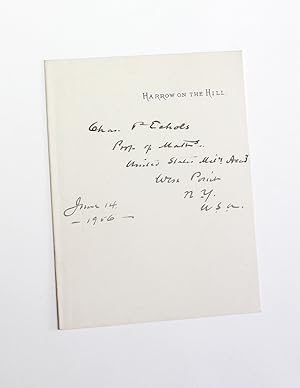 HARROW ON THE HILL.
Chas P Echols
Prof of Maths.
United States Mil'y Acad
West Point
N. Y.
U.S.A.
June 14
— 1906 —